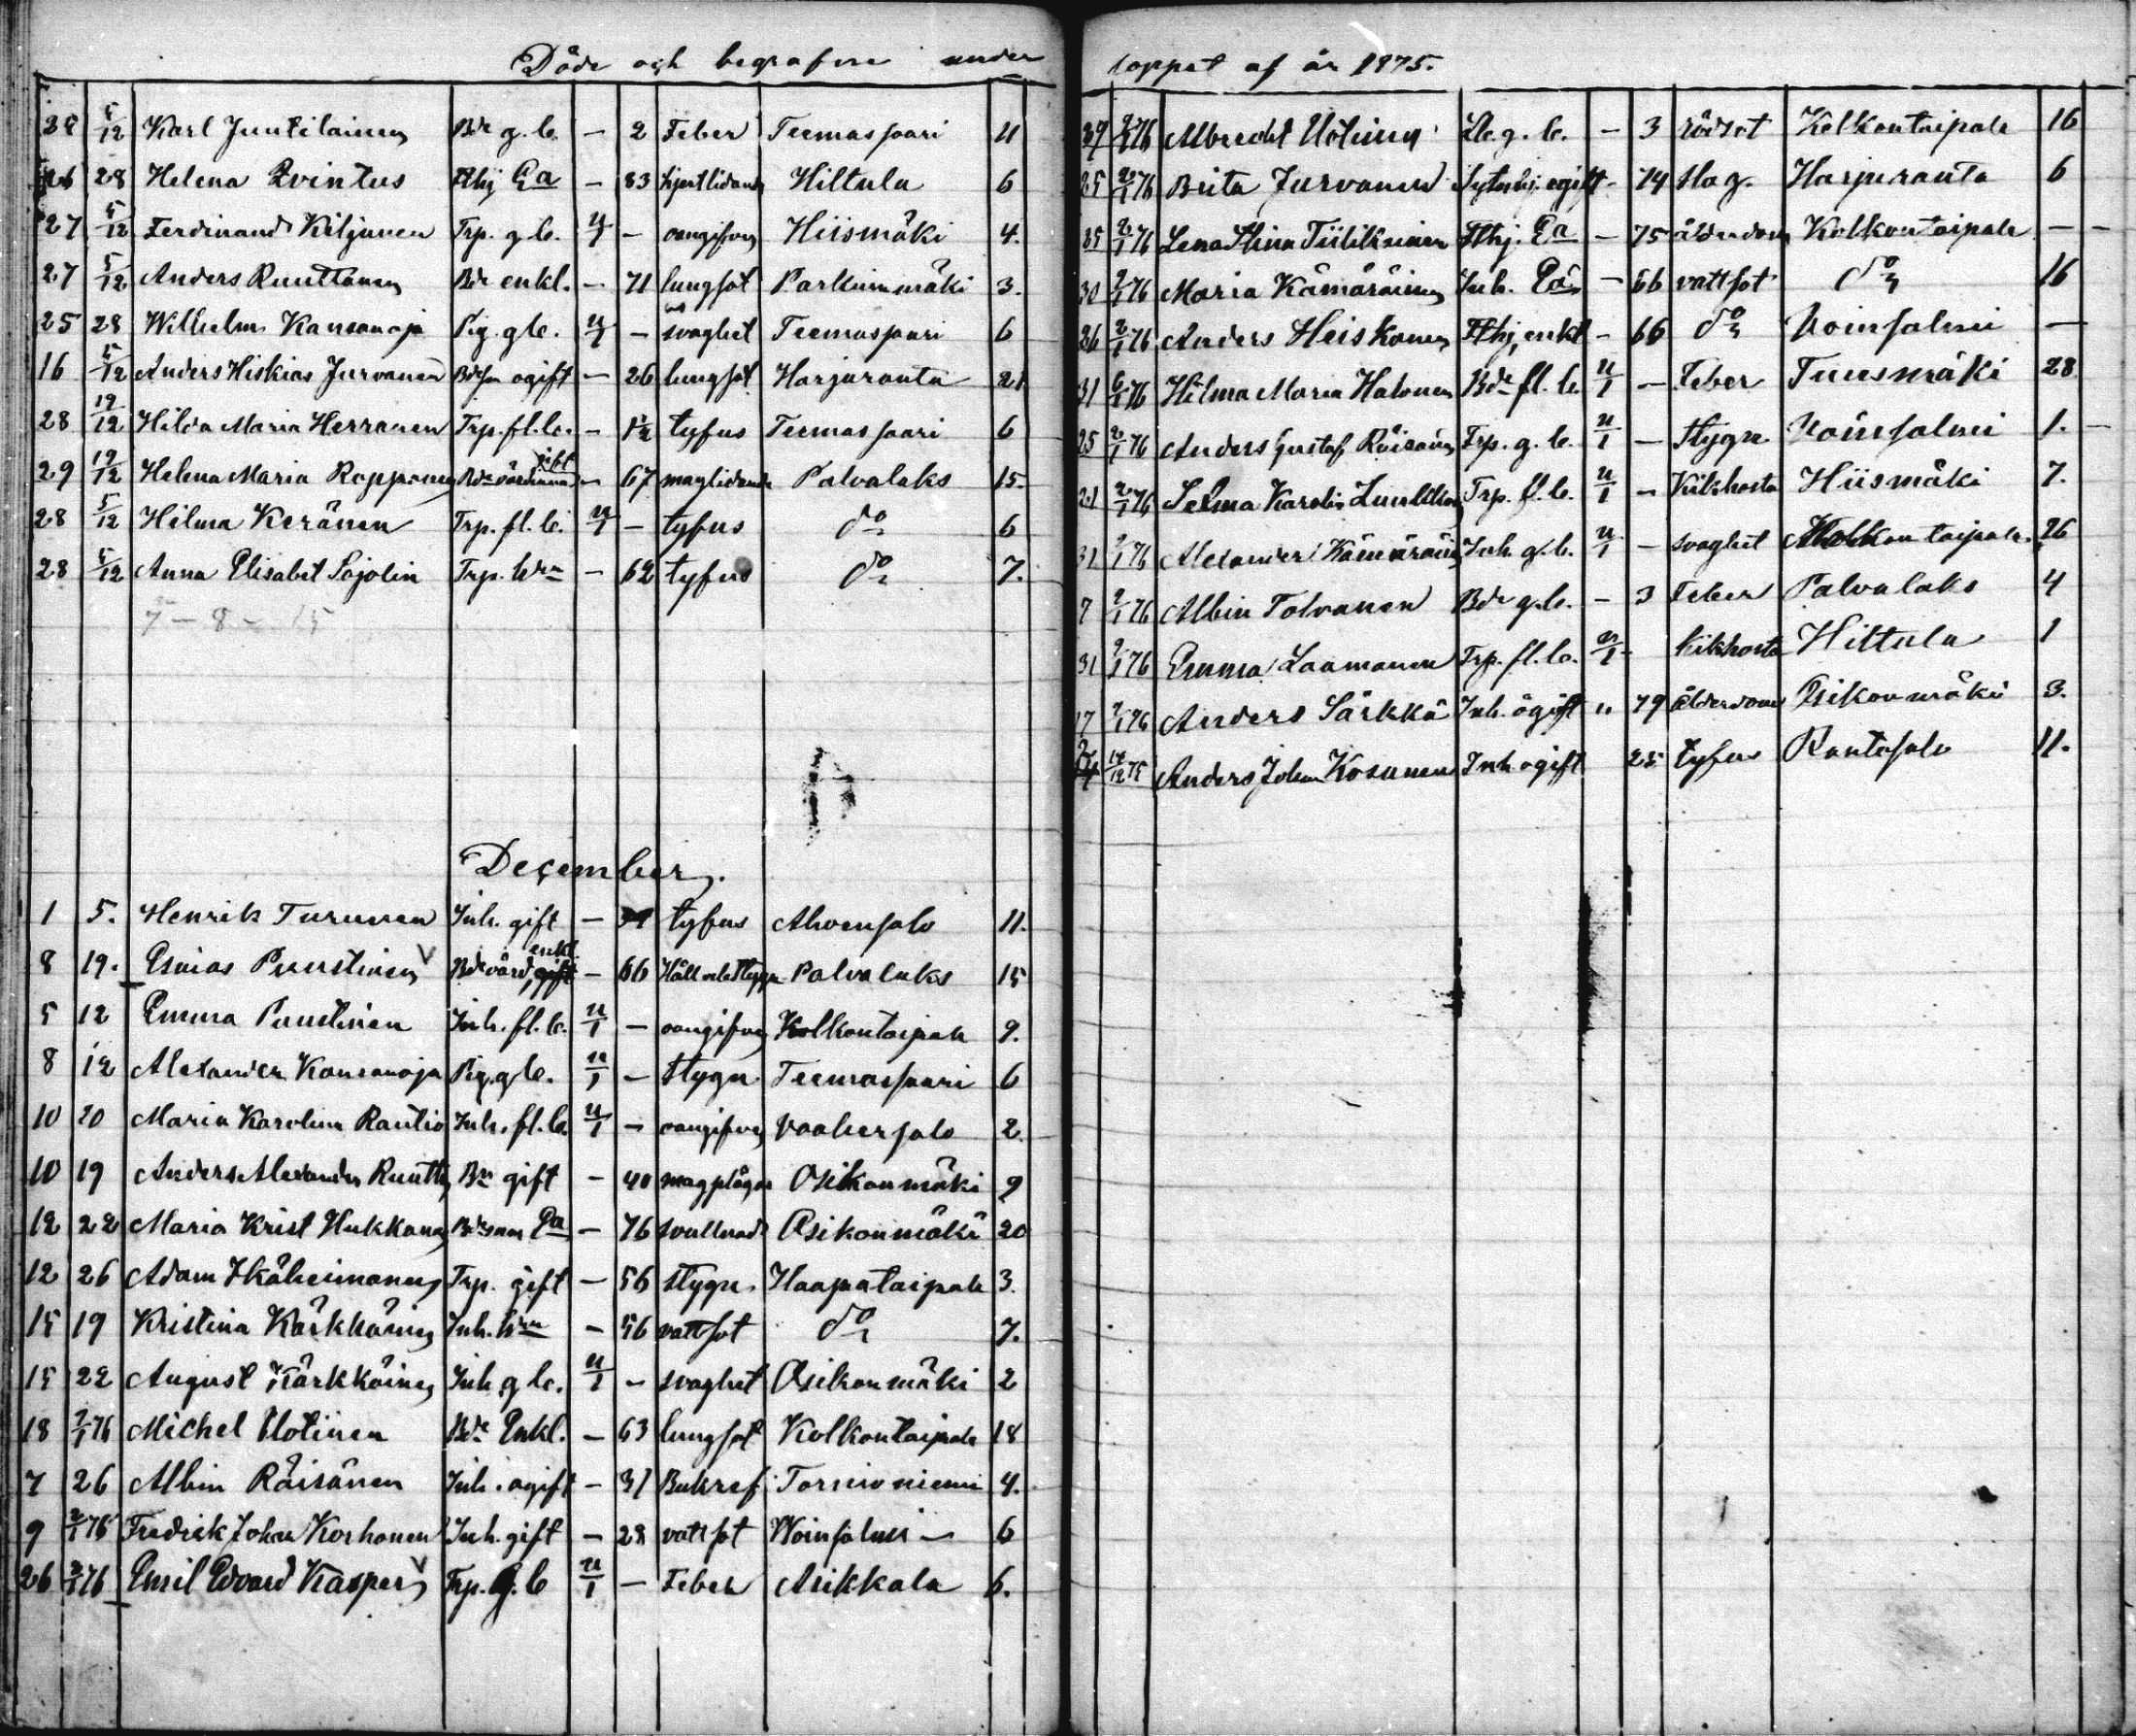 Döde och begrafne under
25 5/12 Karl Juutilainen Bde g. b. - 2 Feber Teemassaari 11
26 28 Helena Qvintus Fthj Ea - 83 hjertlidande Hiltula 6
27 5/12 Ferdinand Kiljunen Trp. g b. u/1 - oangifven Hiismäki 4.
27 5/12 Anders Ruuttanen Bde enkl. - 71 lungsot Parkuinmäki 3.
25 28 Wilhelm Kansanoja Pig. g b. u/1 - svaghet Teemassaari 6
16 5/12 Anders Hiskias Jurvanen Bdeson ogift - 26 lungsot Harjuranta 21
28 19/12 Hilda Maria Herranen Trp. fl. b. - 1½ tyfus Teemassaari 6
29 19/12 Helena Maria Rapponen Bde värdinna gift - 67 maglidande Palvalaks 15.
28 5/12 Hilma Keränen Trp. fl. b. u/1 - tyfus do 6
28 5/12 Anna Elisabet Sojolin Trp. hru - 62 tyfus do 7.
7 - 8 - 15
December.
1 5. Henrik Turunen Inh. gift - tyfus Ahvensalo 11.
8 19. Esaias Puustinen Bde värd, enkl. gift - 66 Håll och stygn Palvalaks 15
5 12 Emma Puustinen Inh. fl. b. u/1 - oangifven Kolkontaipale 9.
8 12 Alexander Kansanoja Pig. g b. u/1 - stygn Teemassaari 6
10 20 Maria Karolina Rautio Inh. fl. b. u/1 - oangifven Vaahersalo 2
10 19 Anders Alexander Ruutt Bn gift - 40 magplågor Asikonmäki 9
12 22 Maria Krist Hukkanen Bdeson Ea - 76 svullnad Asikonmäki 20
12 26 Adam Ikäheimonen Trp. gift - 56 stygn Haapataipale 3.
15 19 Kristina Kärkkäinen Inh. hru - 56 vattsot do 7.
15 22 August Kärkkäinen Inh. g b. u/1 - svaghet Asikonmäki 2
18 2/1 76 Michel Uotinen Bde Enkl. - 63 lungsot Kolkontaipale 18
7 26 Albin Räisänen Inh. ogift - 31 Bukref Tornioniemi 4.
9 2/1 76 Fredrik Johan Korhonen Inh. gift - 28 vattsot Woinsalmi - 6
26 2/1 76 Emil Edvard Kasper Trp. g. b u/1 - Feber Asikkala 6.
loppet af år 1875.
2/1 76 Albrecht Uotinen g. b. - 3 rödsot Kolkontaipale 16
25 2/1 76 Brita Jurvanen ogift - 74 slag. Harjuranta 6
25 2/1 76 Lena Stina Tiilikainen Fthj. Ea - 75 ålderdom Kolkontaipale -
30 2/1 76 Maria Kämäräinen Inh. Ea - 66 vattsot do 16
26 2/1 76 Anders Heiskanen Fthj, enkl - 66 do Voinsalmi -
31 6/1 76 Hilma Maria Halonen Bde fl. b. u/1 - Feber Tuusmäki 28
25 2/1 76 Anders Gustaf Räisänen Trp. g. b. u/1 - Stygn Voinsalmi 1. -
21 2/1 76 Selma Karolin Luukkon Trp. fl. b. u/1 - Kikhosta Hiismäki 7.
31 2/1 76 Alexander Kämäräin Inh. g. b. u/1 - svaghet Kolkontaipale. 26
7 2/1 76 Albin Tolvanen Bde g. b. - 3 Feber Palvalaks 4
31 2/1 76 Emma Laamanen Trp. fl. b. u/1 Kikhosta Hiltula 1
17 2/1 76 Anders Särkkä Inh. ogift " 79 ålderdom Asikonmäki 3.
12 75 Anders Johan Kosunen Inh ogift 25 tyfus Rantasalo 11.